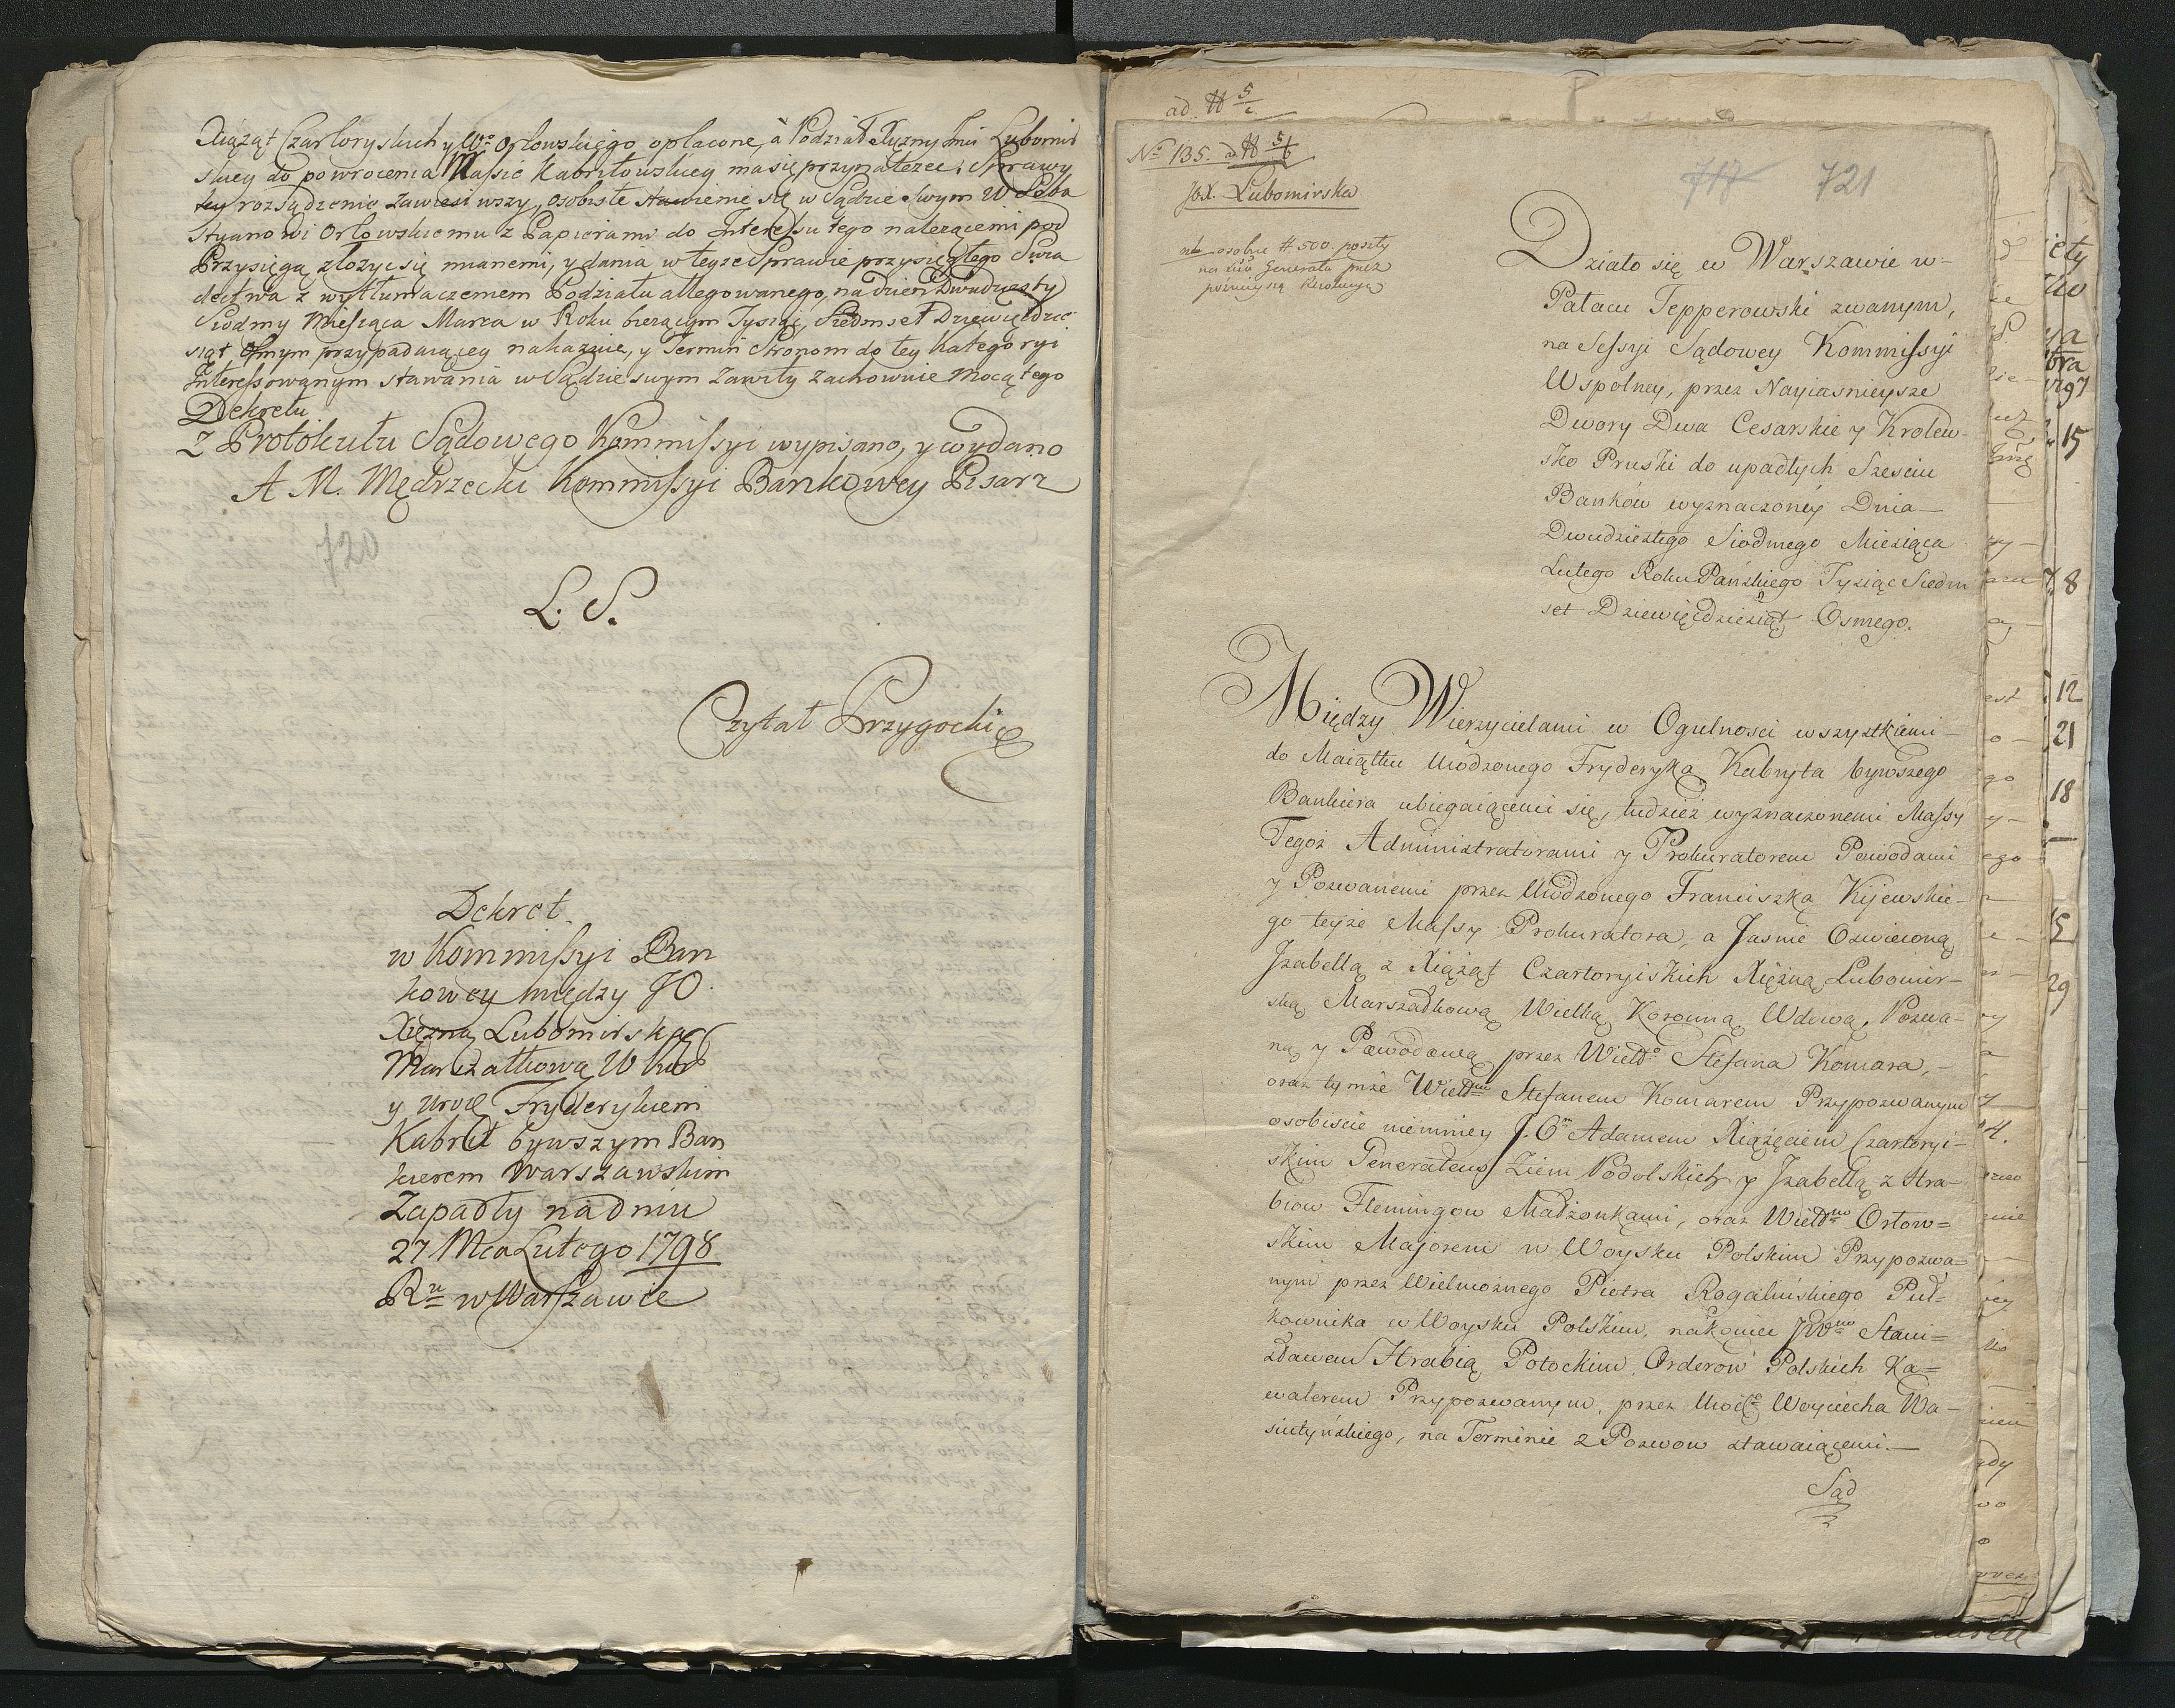 Xiążąt Czartoryskich y Wo Orłowskiego opłacone, â Podział Xiężny Jmci Lubomir
skiey do powrocenia Massie Kabrytowskiey ma się przynależeć; Sprawy
tey rozsądzenie zawiesiwszy, osobiste stawienie się w Sądzie swym W Seba
styanowi Orłowskiemu z Papierami do Interessu tego należącemi pod
Przysięgą złożyć się mianemi, y dania w teyże Sprawie przysięgłego Swia
dectwa z wytłumaczeniem Podziału allegowanego, na dzień Dwudziesty
Siodmy Miesiąca Marca w Roku bieżącym Tysiąc Siedmset Dziewięćdzie
siąt Osmym przypadaiącey nakazuie, y Termin Stronom do tey Kategoryi
Interessowanym stawania w Sądzie swym Zawity zachownie mocą tego
Dekretu
Z Protokułu Sądowego Kommissyi wypisano, y wydano
A M. Mędrzecki Kommissyi Bankowey Pisarz
720
L. S.
Czytał Przygocki
Dekret
w Kommissyi Ban
kowey między JO.
Xiężną Lubomirską
Marszałkową W Kor
y Urod Fryderykiem
Kabryt bywszym Ban
kierem Warszawskim
Zapadły na dniu
27 Mca Lutego 1798
Ru w Warszawie
ad. # 5/c
No 135. ad # 5/b
JOX. Lubomirska
718 721
osobne # 500. poszty
na Generała
Działo się w Warszawie w
Pałacu Tepperowski zwanym,
na Sessyi Sądowey Kommissyi
Wspolney, przez Nayiasnieysze
Dwory Dwa Cesarskie y Krolew-
sko Pruski do upadłych Szesciu
Banków wyznaczoney Dnia
Dwudziestego Siodmego Miesiąca
Lutego Roku Pańskiego Tysiąc Siedm
set Dziewięćdziesiąt Osmego.
Między Wierzycielami w Ogulnosci wszystkiemi
do Maiątku Urodzonego Fryderyka Kabryta bywszego
Bankiera ubiegaiącemi się, tudzież wyznaczonemi Massy
Tegoż Administratorami y Prokuratorem Powodami
y Pozwanemi przez Urodzonego Franciszka Kijewskie-
go teyże Massy Prokuratora, a Jasnie Oswieconą
Jzabellą z Xiążąt Czartoryiskich Xiężną Lubomir-
ską Marszałkową Wielką Koronną Wdową, Pozwa-
ną y Powodową przez Wielo Stefana Komara,
oraz tymże Wielmm Stefanem Komarem Przypozwanym
osobiscie niemniey J. Om Adamem Xiążęciem Czartoryi-
skim Generałem Ziem Podolskich y Jzabellą z Hra-
biow Flemingow Małżonkami, oraz Wielmo Orłow=
skim Majorem w Woysku Polskim Przypozwa=
nymi przez Wielmożnego Piotra Rogalińskiego Puł=
kownika w Woysku Polskim, nakoniec JWmo Stani=
sławem Hrabią Potockim, Orderow Polskich Ka=
walerem Przypozwanym, przez Urodo Woyciecha Wa-
siutyńskiego, na Terminie z Pozwow stawaiącemi.
Sąd
15
8
12
21
18
15
29